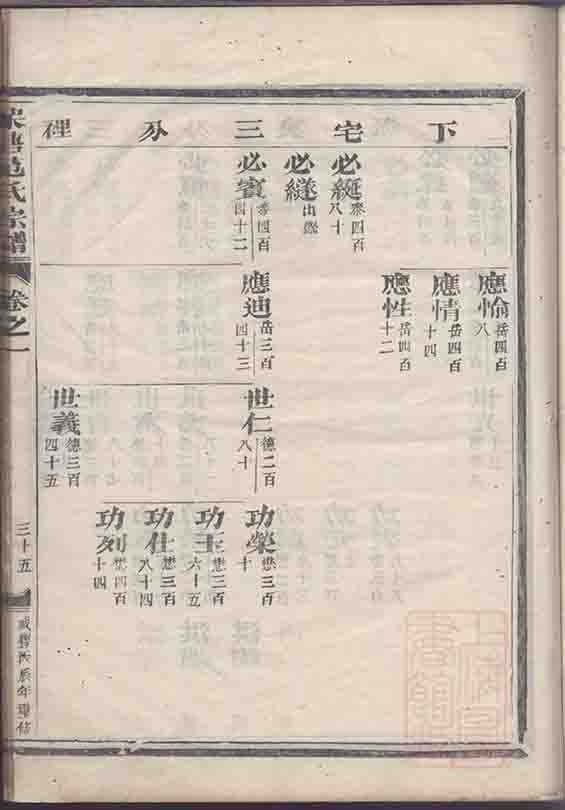 下宅三分裡
必綖 泰四百八十
必繸 出繼
必賓 泰四百四十二
應愉 岳四百八
應情 岳四百十四
應性 岳四百十二
應迪 岳三百四十三
世仁 德二百八十
世義 德三百四十五
功榮 懋三百十
功玉 懋三百六十五
功仕 懋三百八十四
功列 懋四百十四
氏宗譜
卷之一
三十五